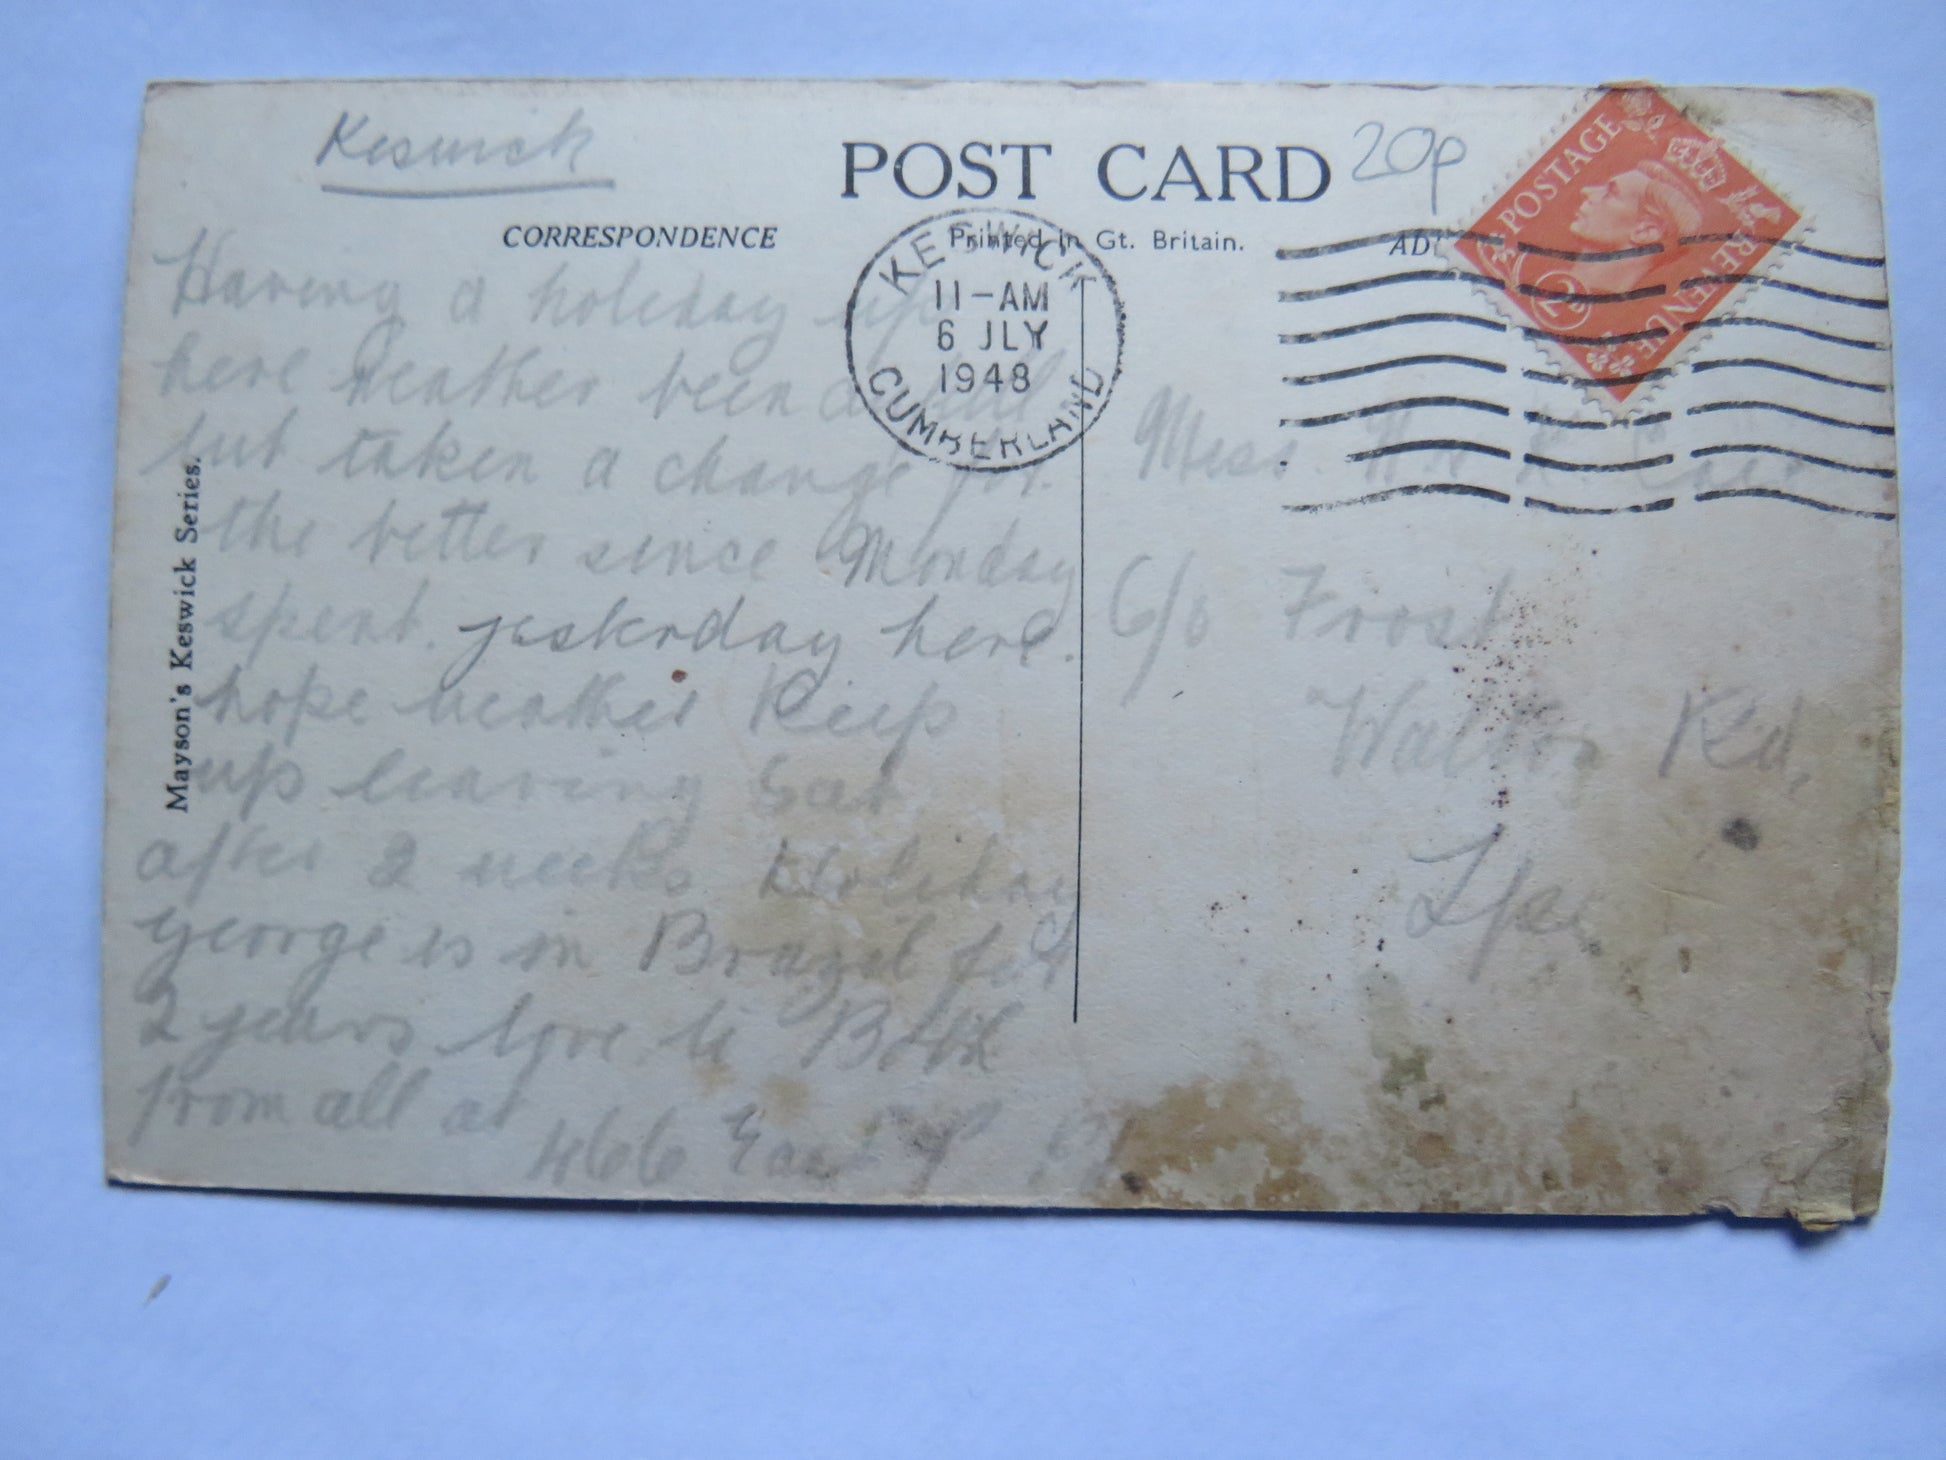 Keswick
POST CARD
20p
CORRESPONDENCE
Printed in Gt. Britain.
AD
POSTAGE
REVENUE
KESWICK
11-AM
6 JLY
1948
CUMBERLAND
Mayson's Keswick Series.
Having a holiday up
here weather been
but taken a change for
the better since Monday
spent yesterday here.
hope weather Keep
up leaving Sat
after 2 weeks Holiday
George is in Brazil for
2 years love to Both
from all at
466 East
Miss
C/o Frost
Walton Rd,